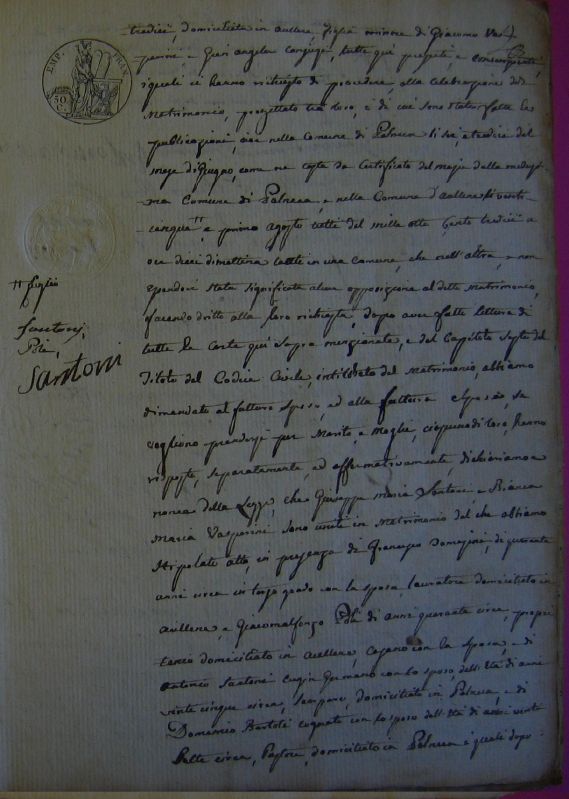 EMP. FRAN.
50 C.
tredici, domiciliata in aullene, figlia minore di Giacomo Vas
perini e angela congiugi, tutte qui presenti e consenzienti,
i quali ci hanno richiesto di procedere alla celebrazione del
Matrimonio, progettato tra loro, e di cui sono state fatte le
publicazioni, cioè nella Comune di Palneca li sei, e tredici del
mese di Giugno, come ne costa da certificato del maire della medesi
ma Comune di Palneca, e nella Comune d'aullene li venti
cinque" e primo agosto tutti del mille otto cento tredici a
ore dieci di mattina tanto in una comune, che nell'altra, e non
essendoci stata significata alcuna opposizione al detto Matrimonio,
facendo dritto alla loro richiesta, dopo aver fatto lettura di
tutte le carte qui sopra menzionate, e del Capitolo sesto del
Titolo del Codice Civile, intitolato del Matrimonio, abbiamo
dimandato al futuro sposo, ed alla futura sposa, se
vogliono prendersi per Marito, e Moglie, ciascuno di loro, hanno
risposto, separatamente, ed affermativamente, dichiariamo a
nome della Legge, che Giuseppe Maria Santoni e Bianca
Maria Vasperini sono uniti in Matrimonio del che abbiamo
stipolato atto, in presenza di Francesco Domenini, di quaranta
anni circa in terzo grado con la sposa, lavoratore domiciliato in
aullene, e Giacomalfonzo Poli di anni quaranta circa, propri
tario domiciliato in aullene, cognato con la sposa, e di
Antonio Santoni cugin Germano con lo sposo, dell'età di anni
vinte cinque circa, domiciliato in Palneca, e di
Domenico Bartoli cognato con lo sposo dell'età di anni vinte
sette circa, Pastore, domiciliato in Palneca i quali dopo
" luglio
Santoni